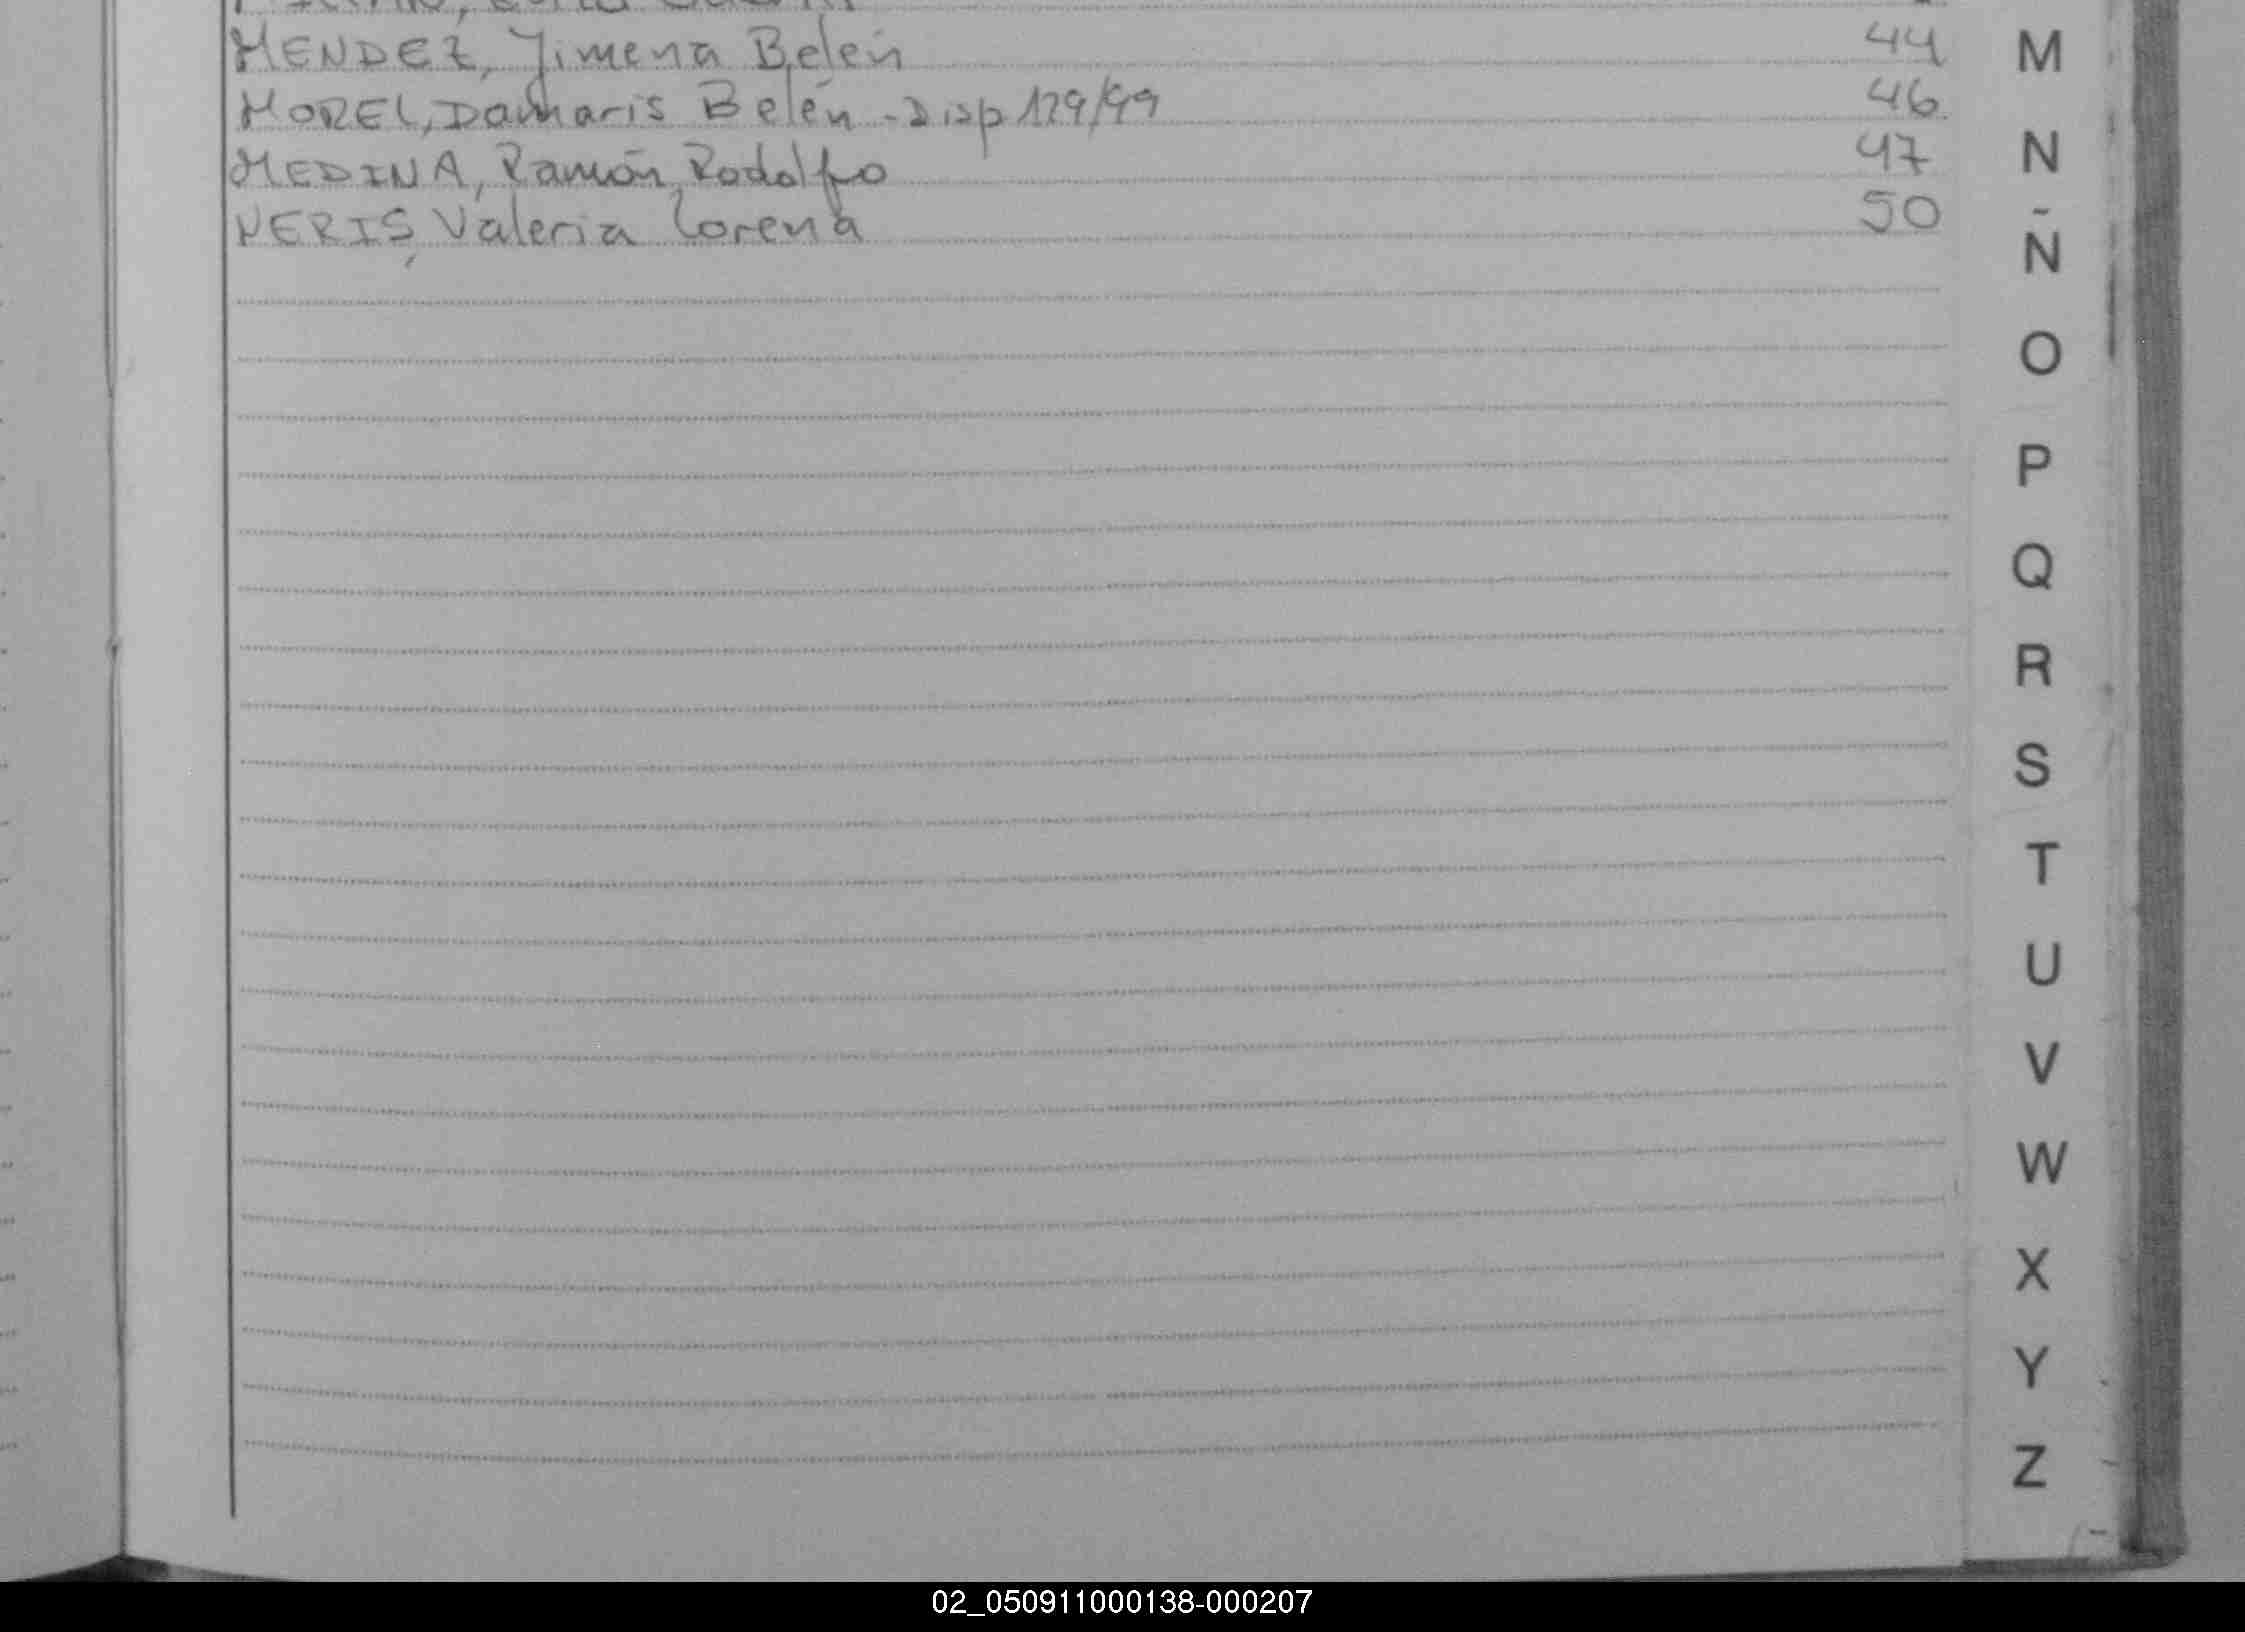 MENDEZ, Jimena Belén 44
MOREL, Damaris Belén - Disp 129/99 46
MEDINA, Ramón Rodolfo 47
NERIS, Valeria Lorena 50
M
N
Ñ
O
P
Q
R
S
T
U
V
W
X
Y
Z
02_050911000138-000207